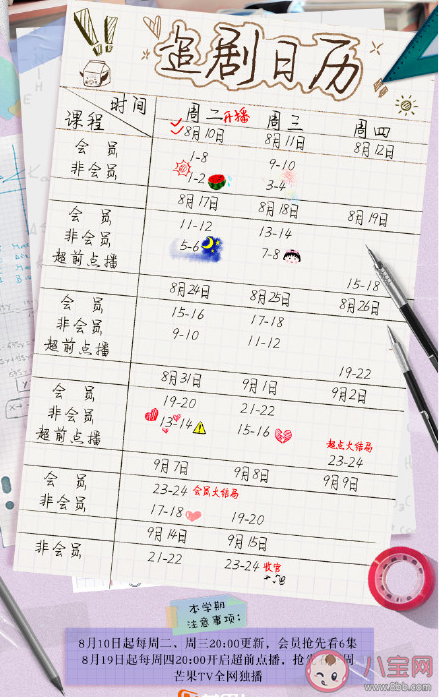 追剧日历
时间 周二开播 周三 周四
课程 8月10日 8月11日 8月12日
会员 1-8 9-10
非会员 1-2 3-4
8月17日 8月18日 8月19日
会员 11-12 13-14
非会员 5-6 7-8
超前点播 15-18
8月24日 8月25日 8月26日
会员 15-16 17-18
非会员 9-10 11-12
超前点播 19-22
8月31日 9月1日 9月2日
会员 19-20 21-22
非会员 13-14 15-16 超点大结局
超前点播 23-24
9月7日 9月8日 9月9日
会员 23-24 会员大结局
非会员 17-18 19-20
9月14日 9月15日
非会员 21-22 23-24 收官
本学期
注意事项:
8月10日起每周二、周三20:00更新，会员抢先看6集
8月19起每周四20:00开启超前点播，抢先 周
芒果TV全网独播
八宝网
www.8bb.com